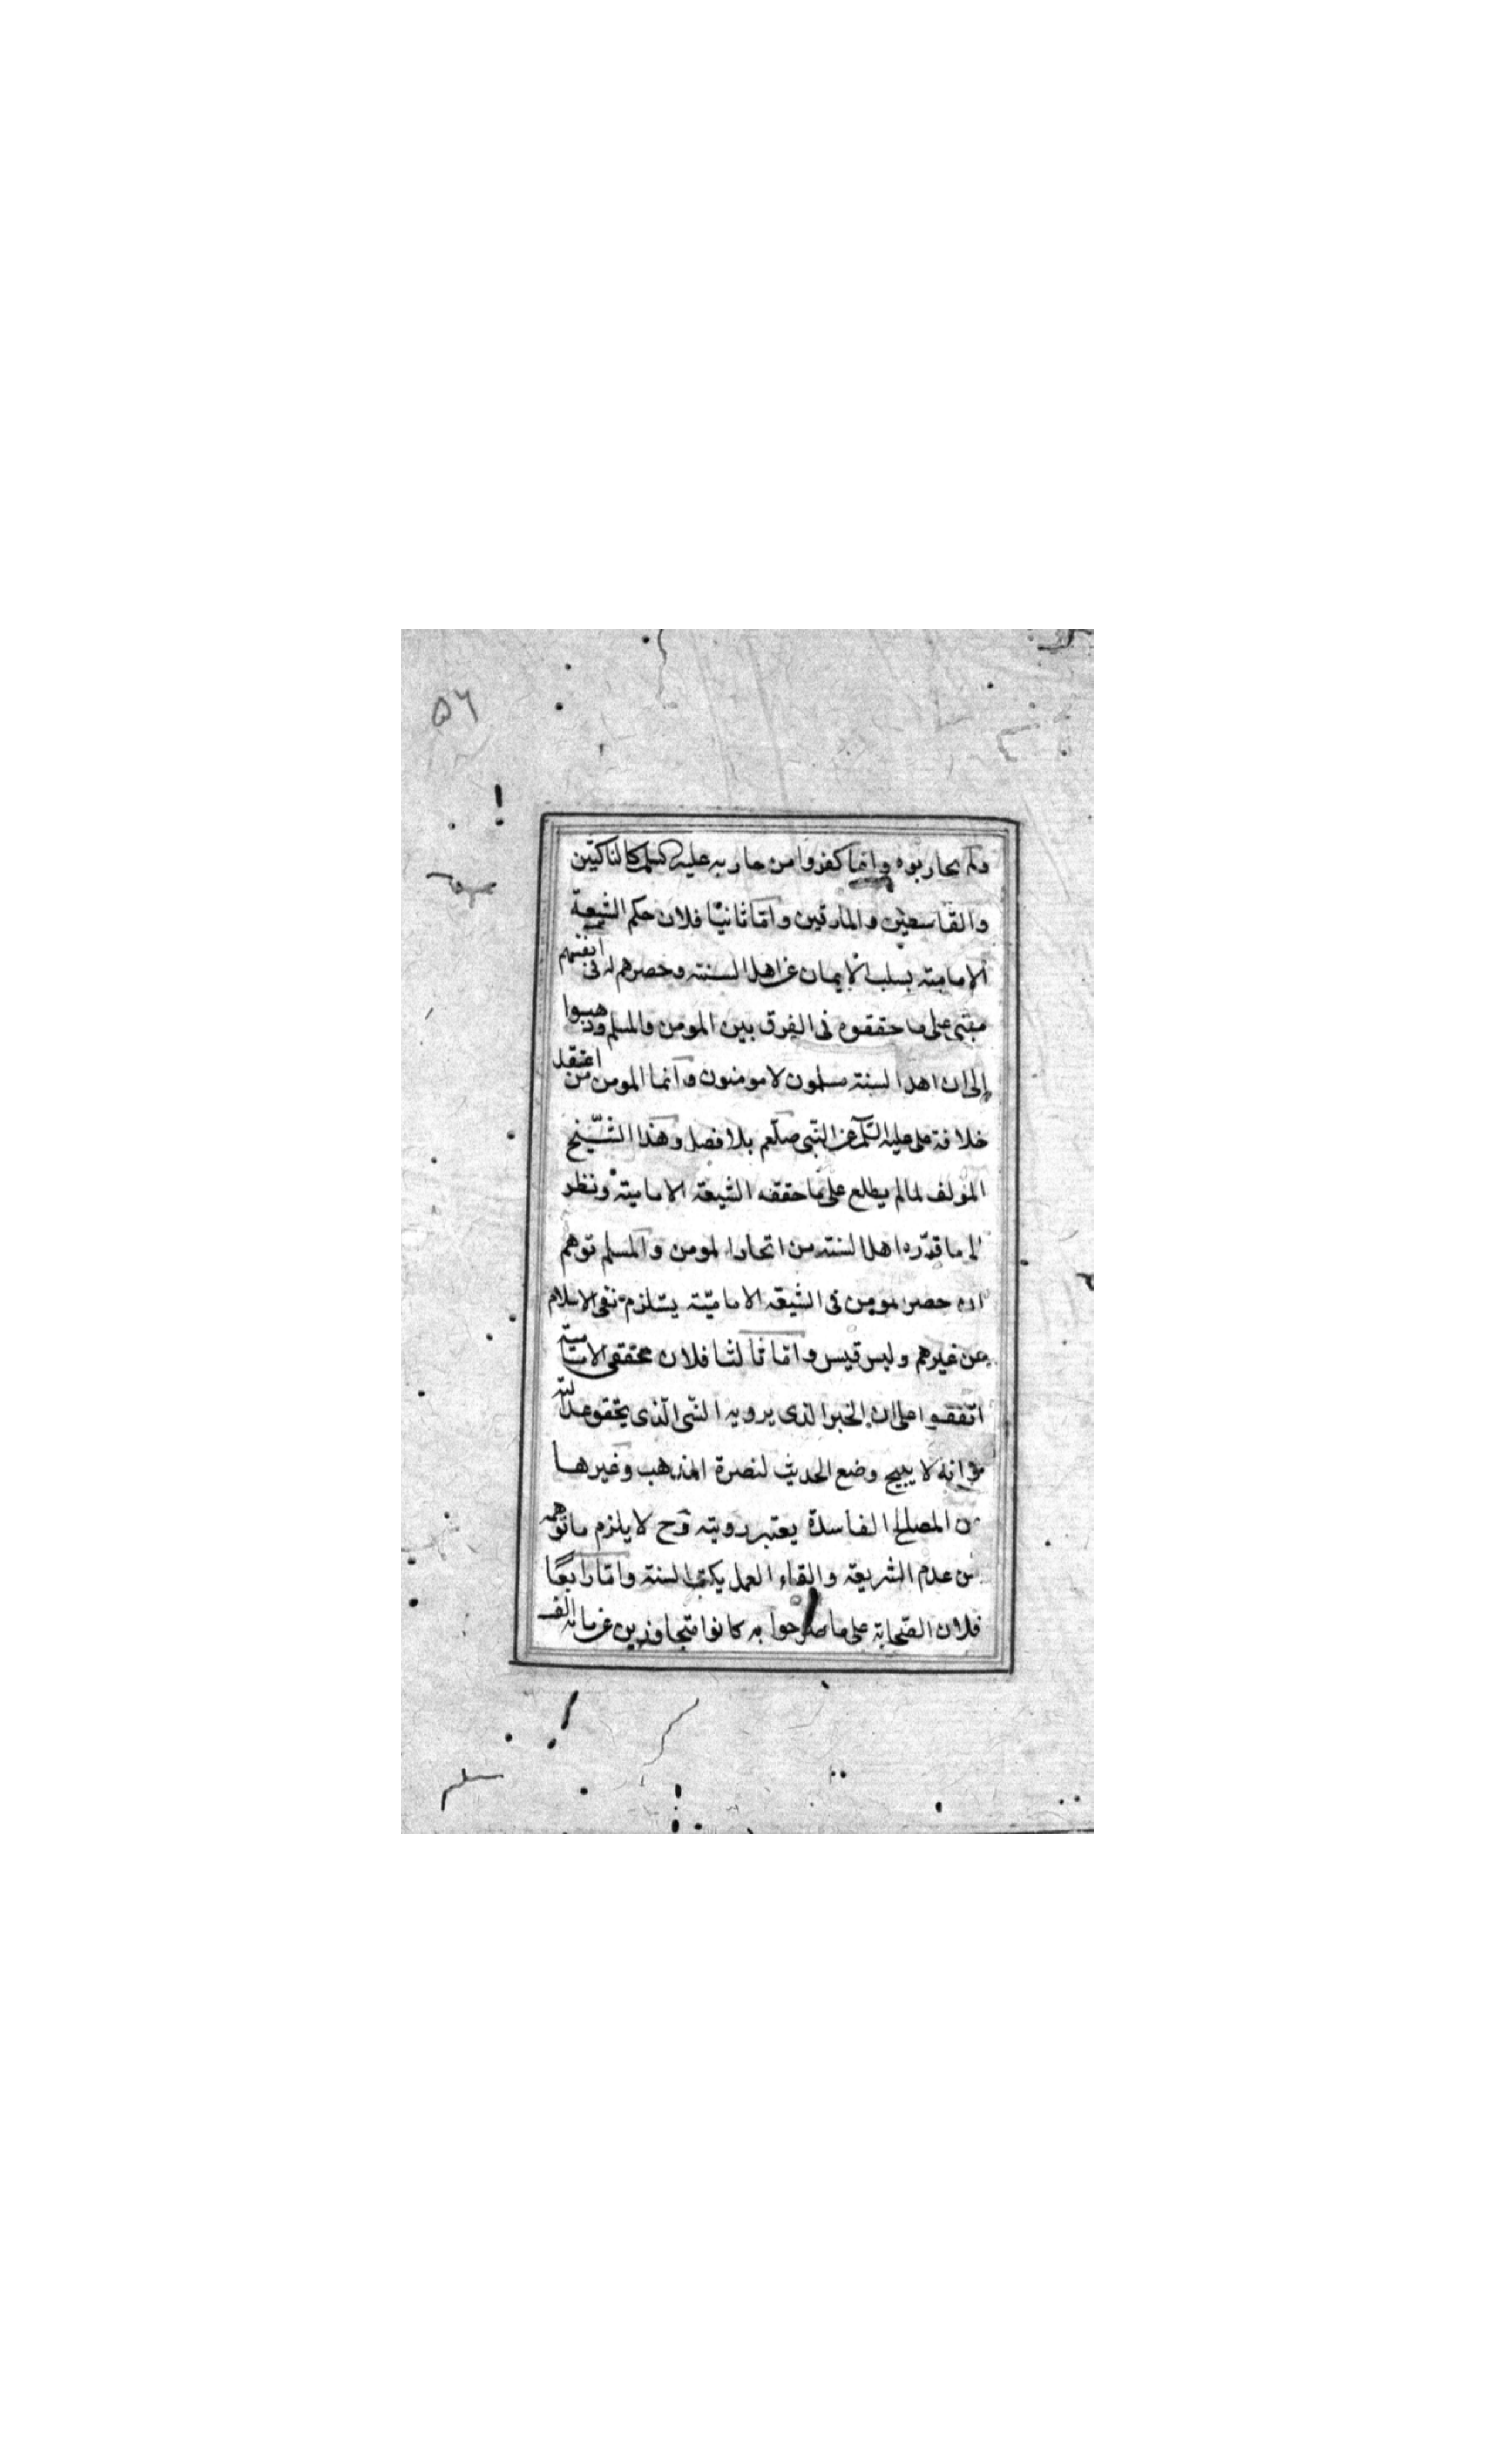 ٥٦
ولم يحاربوه وانما كفروا من حاربه عليه السلم كالناكثين
والقاسطين والمارقين واما ثانيا فلان حكم الشيعة
الامامية بسلب الايمان عن اهل السنته وحصرهم له فى انفسهم
مبتنى على ما حققوه فى الفرق بين المومن والمسلم وذهبوا
الى ان اهل السنة مسلمون لا مومنون وانما المومن من اعتقد
خلافة على عليه السّلم عن النبى صلعم بلا فصل وهذا الشّيخ
المولف لما لم يطلع على ما حققه الشيعة الامامية ونظر
الى ما قدّره اهل السنته من اتحاد المومن والمسلم توهم
ان حصر المومن فى الشيعة الاماميّة يستلزم نفى الاسلام
عن غيرهم وليس قيس واما ثالثا فلان محققى الامامية
اتفقوا على ان الخبر الذى يرويه الشى الّذى يحقق عدالته
وانه لا يبيح وضع الحديث لنصرة المذهب وغيرها
من المصالح الفاسدة يعتبر رويته وح لا يلزم ما توهمه
من عدم الشريعة والقاء العمل بكتب السنة واما رابعًا
فلان الصّحابة على ما صرحوا به كانوا متجاوزين عن مائة الف